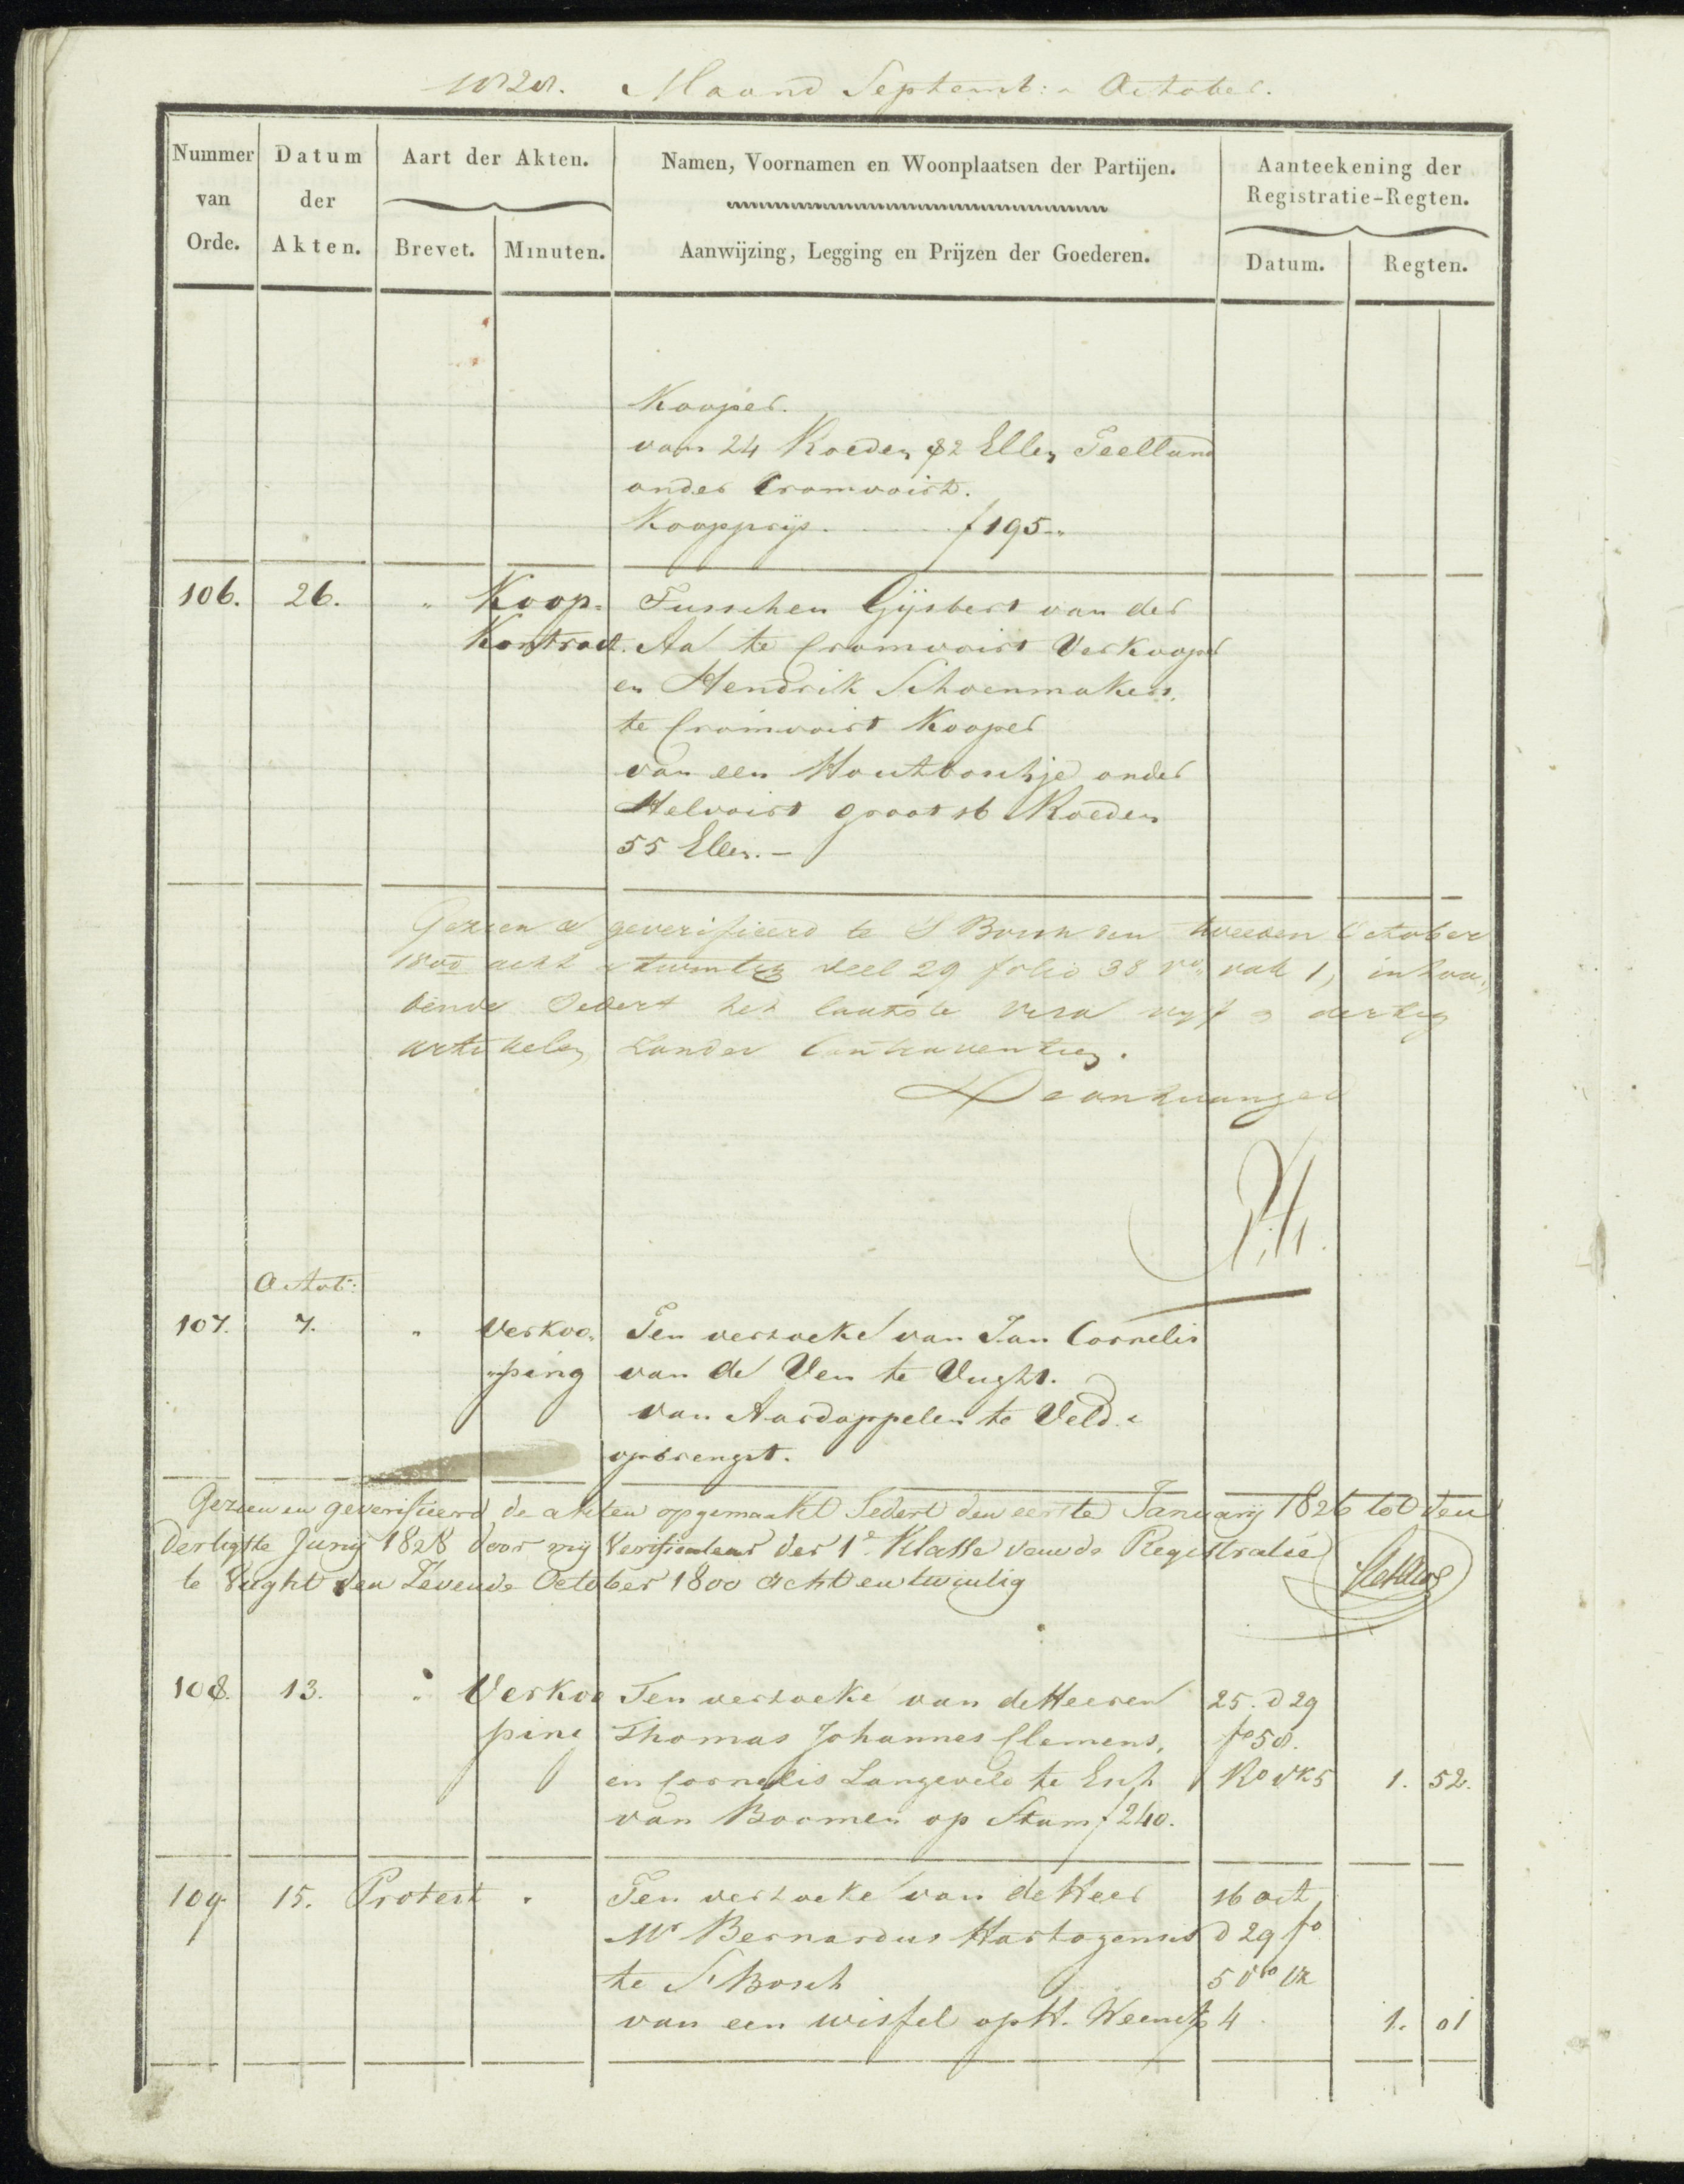 1828. Maand Septemb: & October.
Nummer van Orde.
Datum der Akten.
Aart der Akten.
Brevet. Minuten.
Namen, Voornamen en Woonplaatsen der Partijen.
Aanwijzing, Legging en Prijzen der Goederen.
Aanteekening der Registratie-Regten.
Datum. Regten.
Kooper.
van 24 Roeden 82 Ellen Teelland
onder Cromvoirt.
Koopprijs. f 195-"
106. 26. " Koop- Tusschen Gijsbert van der
Kontract. Aa te Cromvoirt Verkooper
en Hendrik Schoenmakers,
te Cromvoirt Kooper
van een Houtboschje onder
Helvoirt groot 16 Roeden
55 Ellen. -
Gezien & geverifieerd te S Bosch den tweeden October
1800 acht & twintig deel 29 folio 38 vo vak 1, inhou„
dende Sedert het laatste visa vijf & dertig
artikelen, zonder Contraventien.
De ontvanger
Octob:
107. 7. " Verkoo„ Ten verzoeke van Jan Cornelis
„ping van de Ven te Vught.
van Aardappelen te Veld &
opbrengst.
Gezien en geverifieerd de akten opgemaakt Sedert den eerste January 1826 tot den
dertigste Juny 1828 door mij Verificateur der 1e Klasse van de Registratie
te Vught den Zevende October 1800 Acht en twintig
108. 13. " Verkoo Ten verzoeke van de Heeren 25. d 29
ping Thomas Johannes Clemens, fo 58.
en Cornelis Langeveld te Esch Ro vk 5 1. 52.
van Boomen op Stam f 240.
109 15. Protest " Ten verzoeke van de Heer 16 oct
Mr Bernardus Hartogensis d 29 fo
te S Bosch 5 Vo vk
van een wissel op H. 4 1. 01